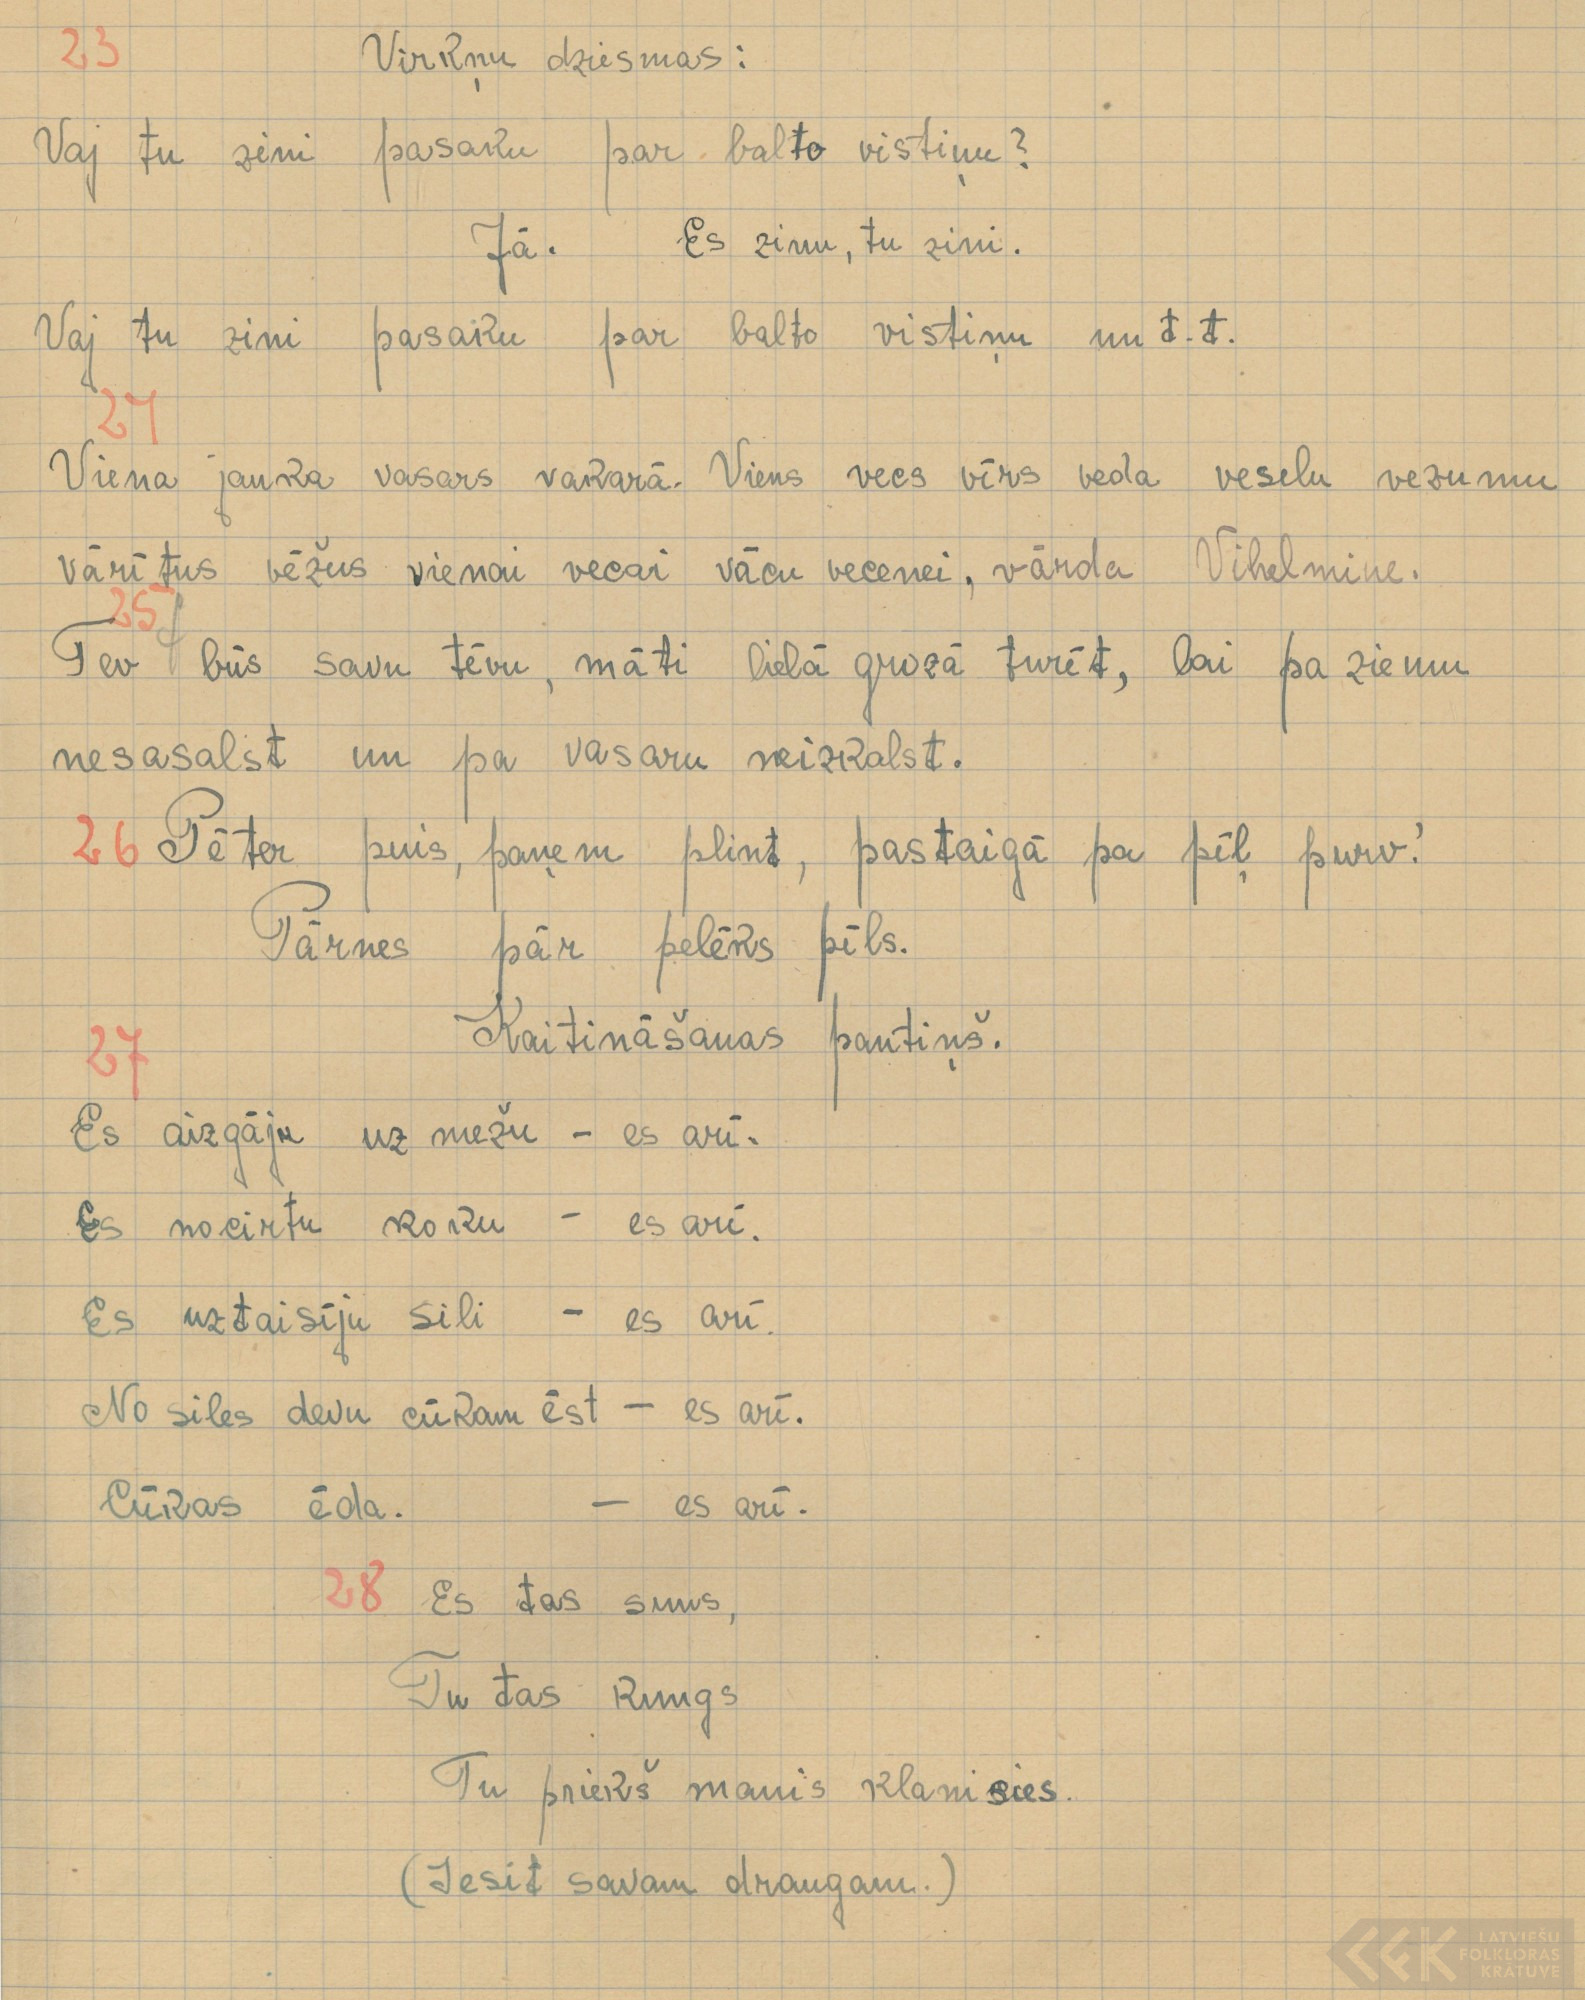 23 Virkņu dziesmas:
Vaj tu zini pasaku par balto vistiņu?
Jā. Es zinu, tu zini.
Vaj tu zini pasaku par balto vistiņu un t.t.
24
Viena jauka vasars vakarā. Viens vecs vīrs veda veselu vezumu
vārītus vēžus vienai vecai vācu vecenei, vārda Vihelmine.
25
Tev būs savu tēvu, māti lielā grozā turēt, lai pa ziemu
nesasalst un pa vasaru neizkalst.
26 Pēter puis, paņem plint, pastaigā pa pīļ purv!
Pārnes pār pelēks pīls.
Kaitināšanas pantiņš.
27
Es aizgāju uz mežu - es arī.
Es nocirtu koku - es arī.
Es uztaisīju sili - es arī.
No siles devu cūkam ēst - es arī.
Cūkas ēda. - es arī.
28 Es tas suns,
Tu tas kungs
Tu priekš manis klanisies.
(Iesit savam draugam.)
LATVIEŠU
FOLKLORAS
KRĀTUVE